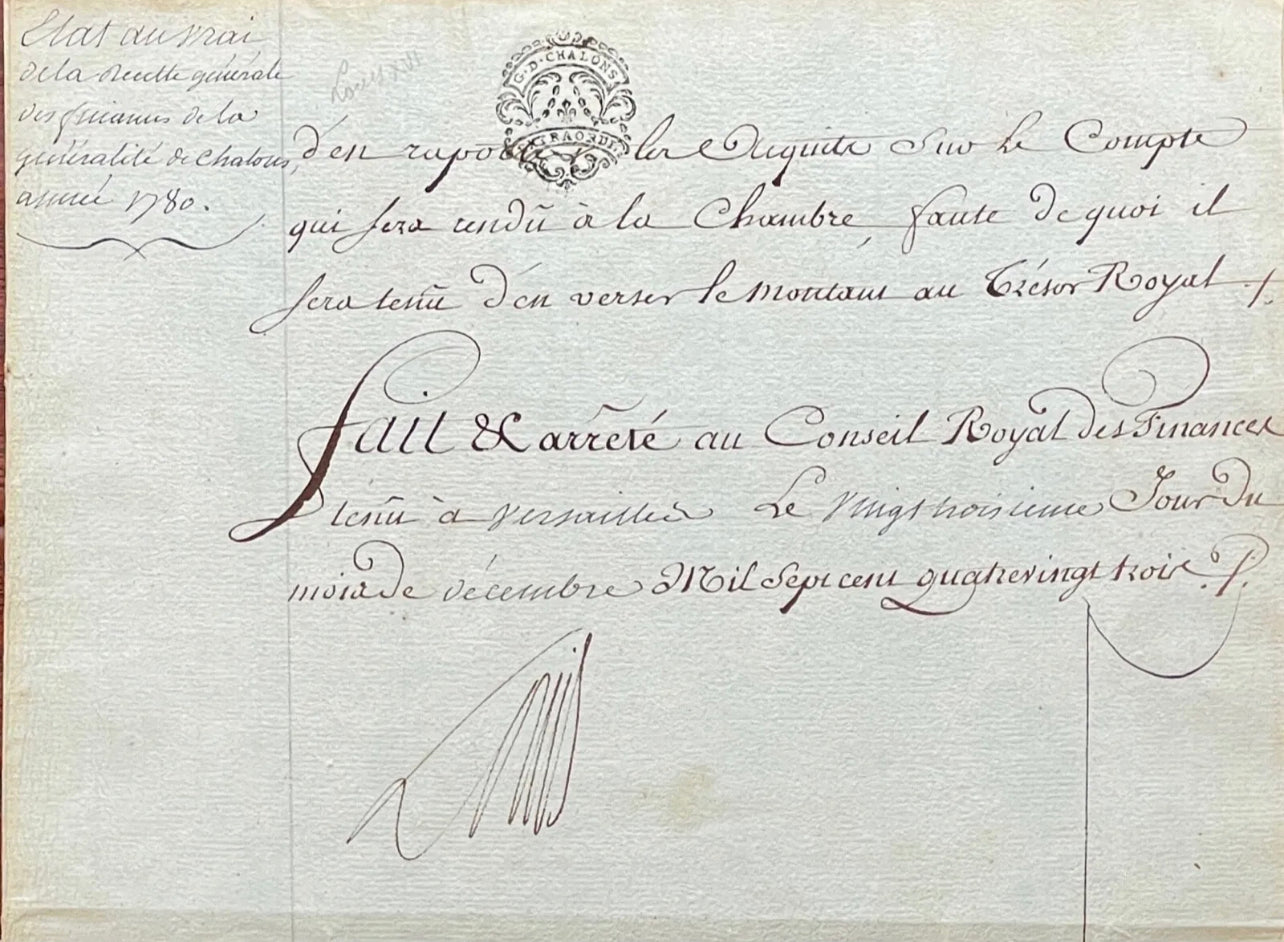 Etat au vrai
de la Recette générale
des finances de la
généralité de Chalons,
année 1780.
Louis XVI
G·D·CHALONS
EXTRAORDI
d'en raporter les Acquits Sur Le Compte
qui sera rendû à la Chambre, faute de quoi il
sera tenû d'en verser le montant au Trésor Royal ./.
Fait & arrêté au Conseil Royal des Finances
tenû à Versailles Le vingt troisieme Jour du
mois de décembre Mil Sept cent quatrevingt trois ./.